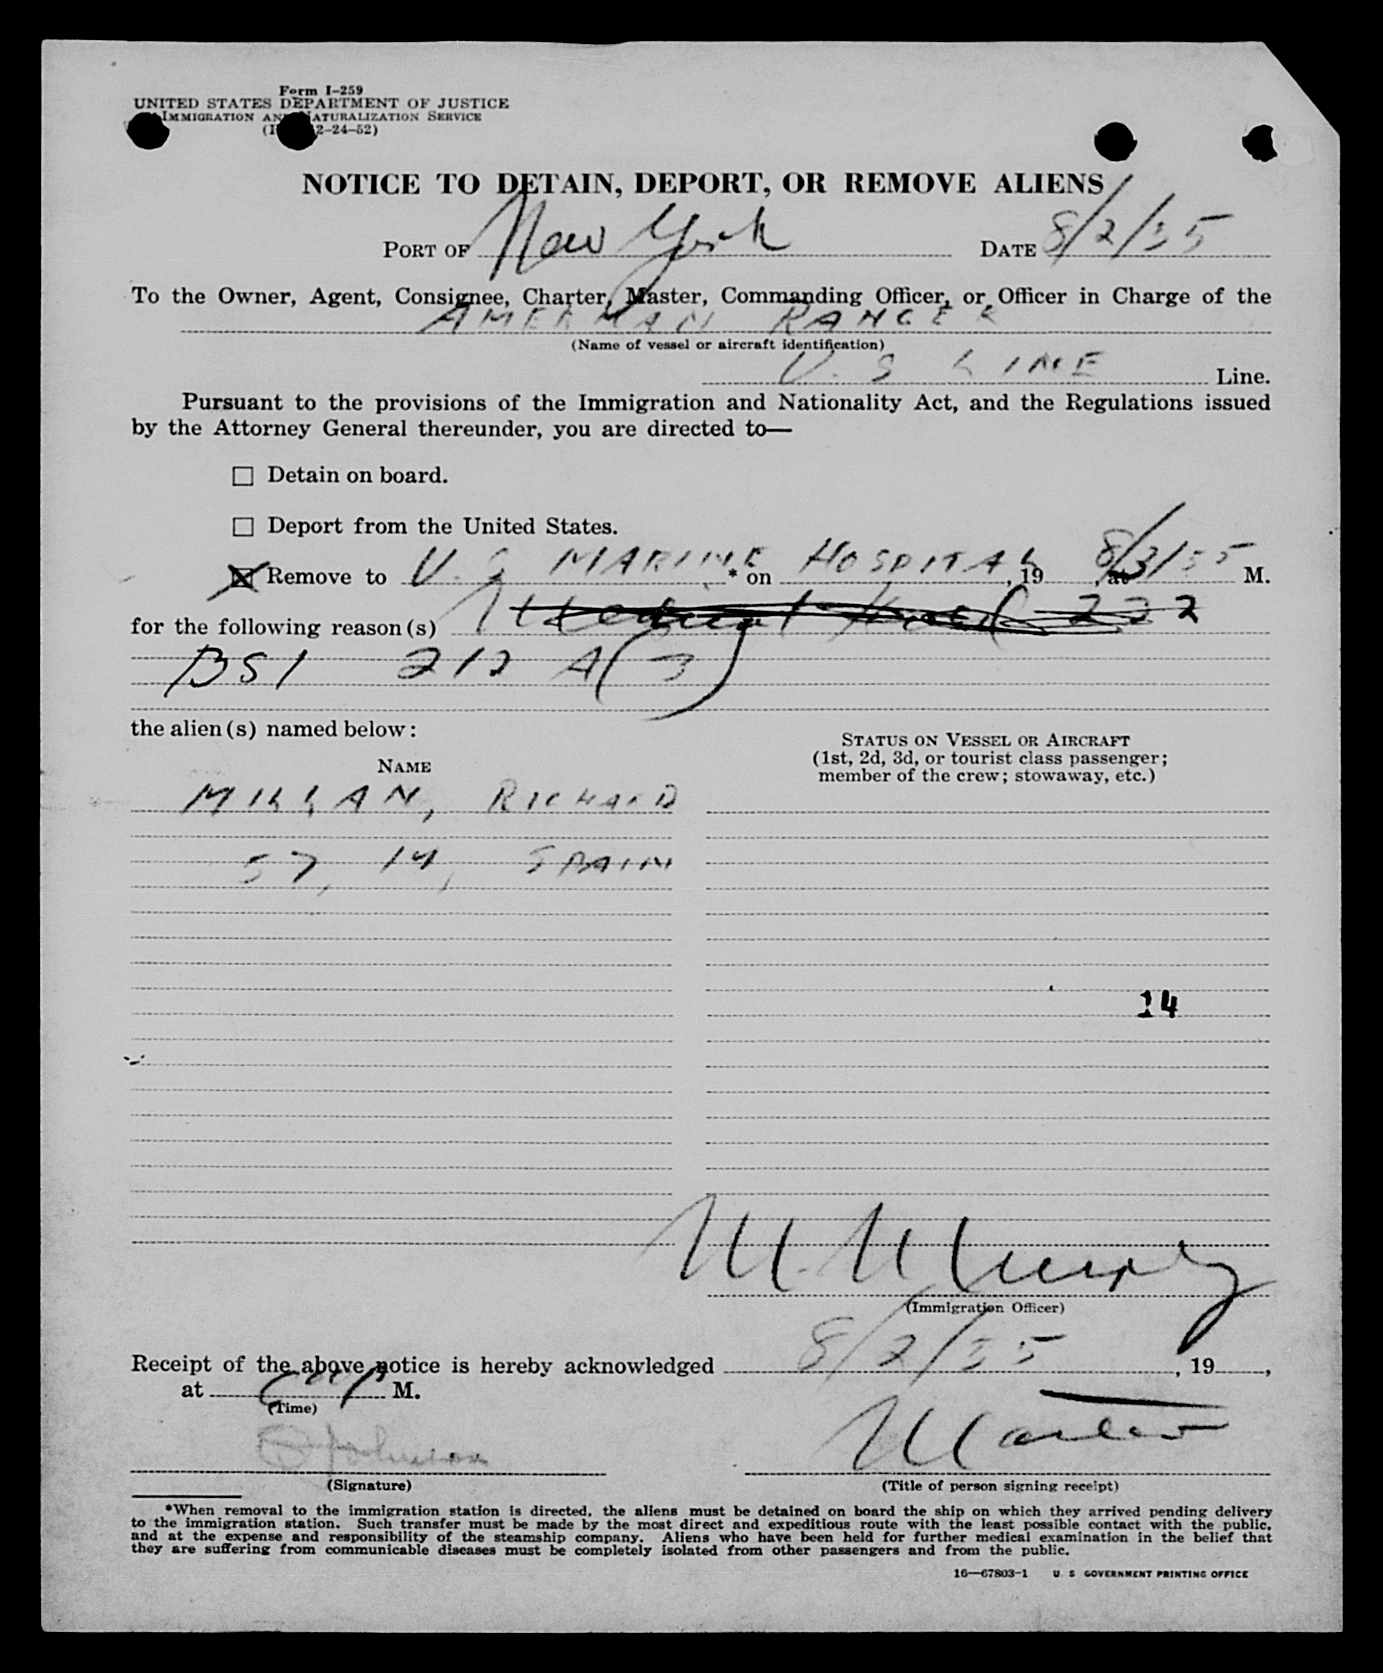 Form I-259
UNITED STATES DEPARTMENT OF JUSTICE
IMMIGRATION AND NATURALIZATION SERVICE
2-24-52)
NOTICE TO DETAIN, DEPORT, OR REMOVE ALIENS
PORT OF New York DATE 8/2/55
To the Owner, Agent, Consignee, Charter, Master, Commanding Officer, or Officer in Charge of the
AMERICAN RANGER
(Name of vessel or aircraft identification)
U. S LINE Line.
Pursuant to the provisions of the Immigration and Nationality Act, and the Regulations issued
by the Attorney General thereunder, you are directed to—
☐ Detain on board.
☐ Deport from the United States.
☒ Remove to U. S MARINE * on HOSPITAL, 19 , at 8/3/55 M.
for the following reason(s) Medical 222
BSI 212 A(3)
the alien(s) named below:
STATUS ON VESSEL OR AIRCRAFT
(1st, 2d, 3d, or tourist class passenger;
member of the crew; stowaway, etc.)
NAME
MILLAN, RICHARD
57, M, SPAIN
14
M. M Murphy
(Immigration Officer)
8/2/55
Receipt of the above notice is hereby acknowledged , 19 ,
at M.
(Time)
Johnson
Master
(Signature)
(Title of person signing receipt)
*When removal to the immigration station is directed, the aliens must be detained on board the ship on which they arrived pending delivery
to the immigration station. Such transfer must be made by the most direct and expeditious route with the least possible contact with the public,
and at the expense and responsibility of the steamship company. Aliens who have been held for further medical examination in the belief that
they are suffering from communicable diseases must be completely isolated from other passengers and from the public.
16—67803-1 U. S GOVERNMENT PRINTING OFFICE